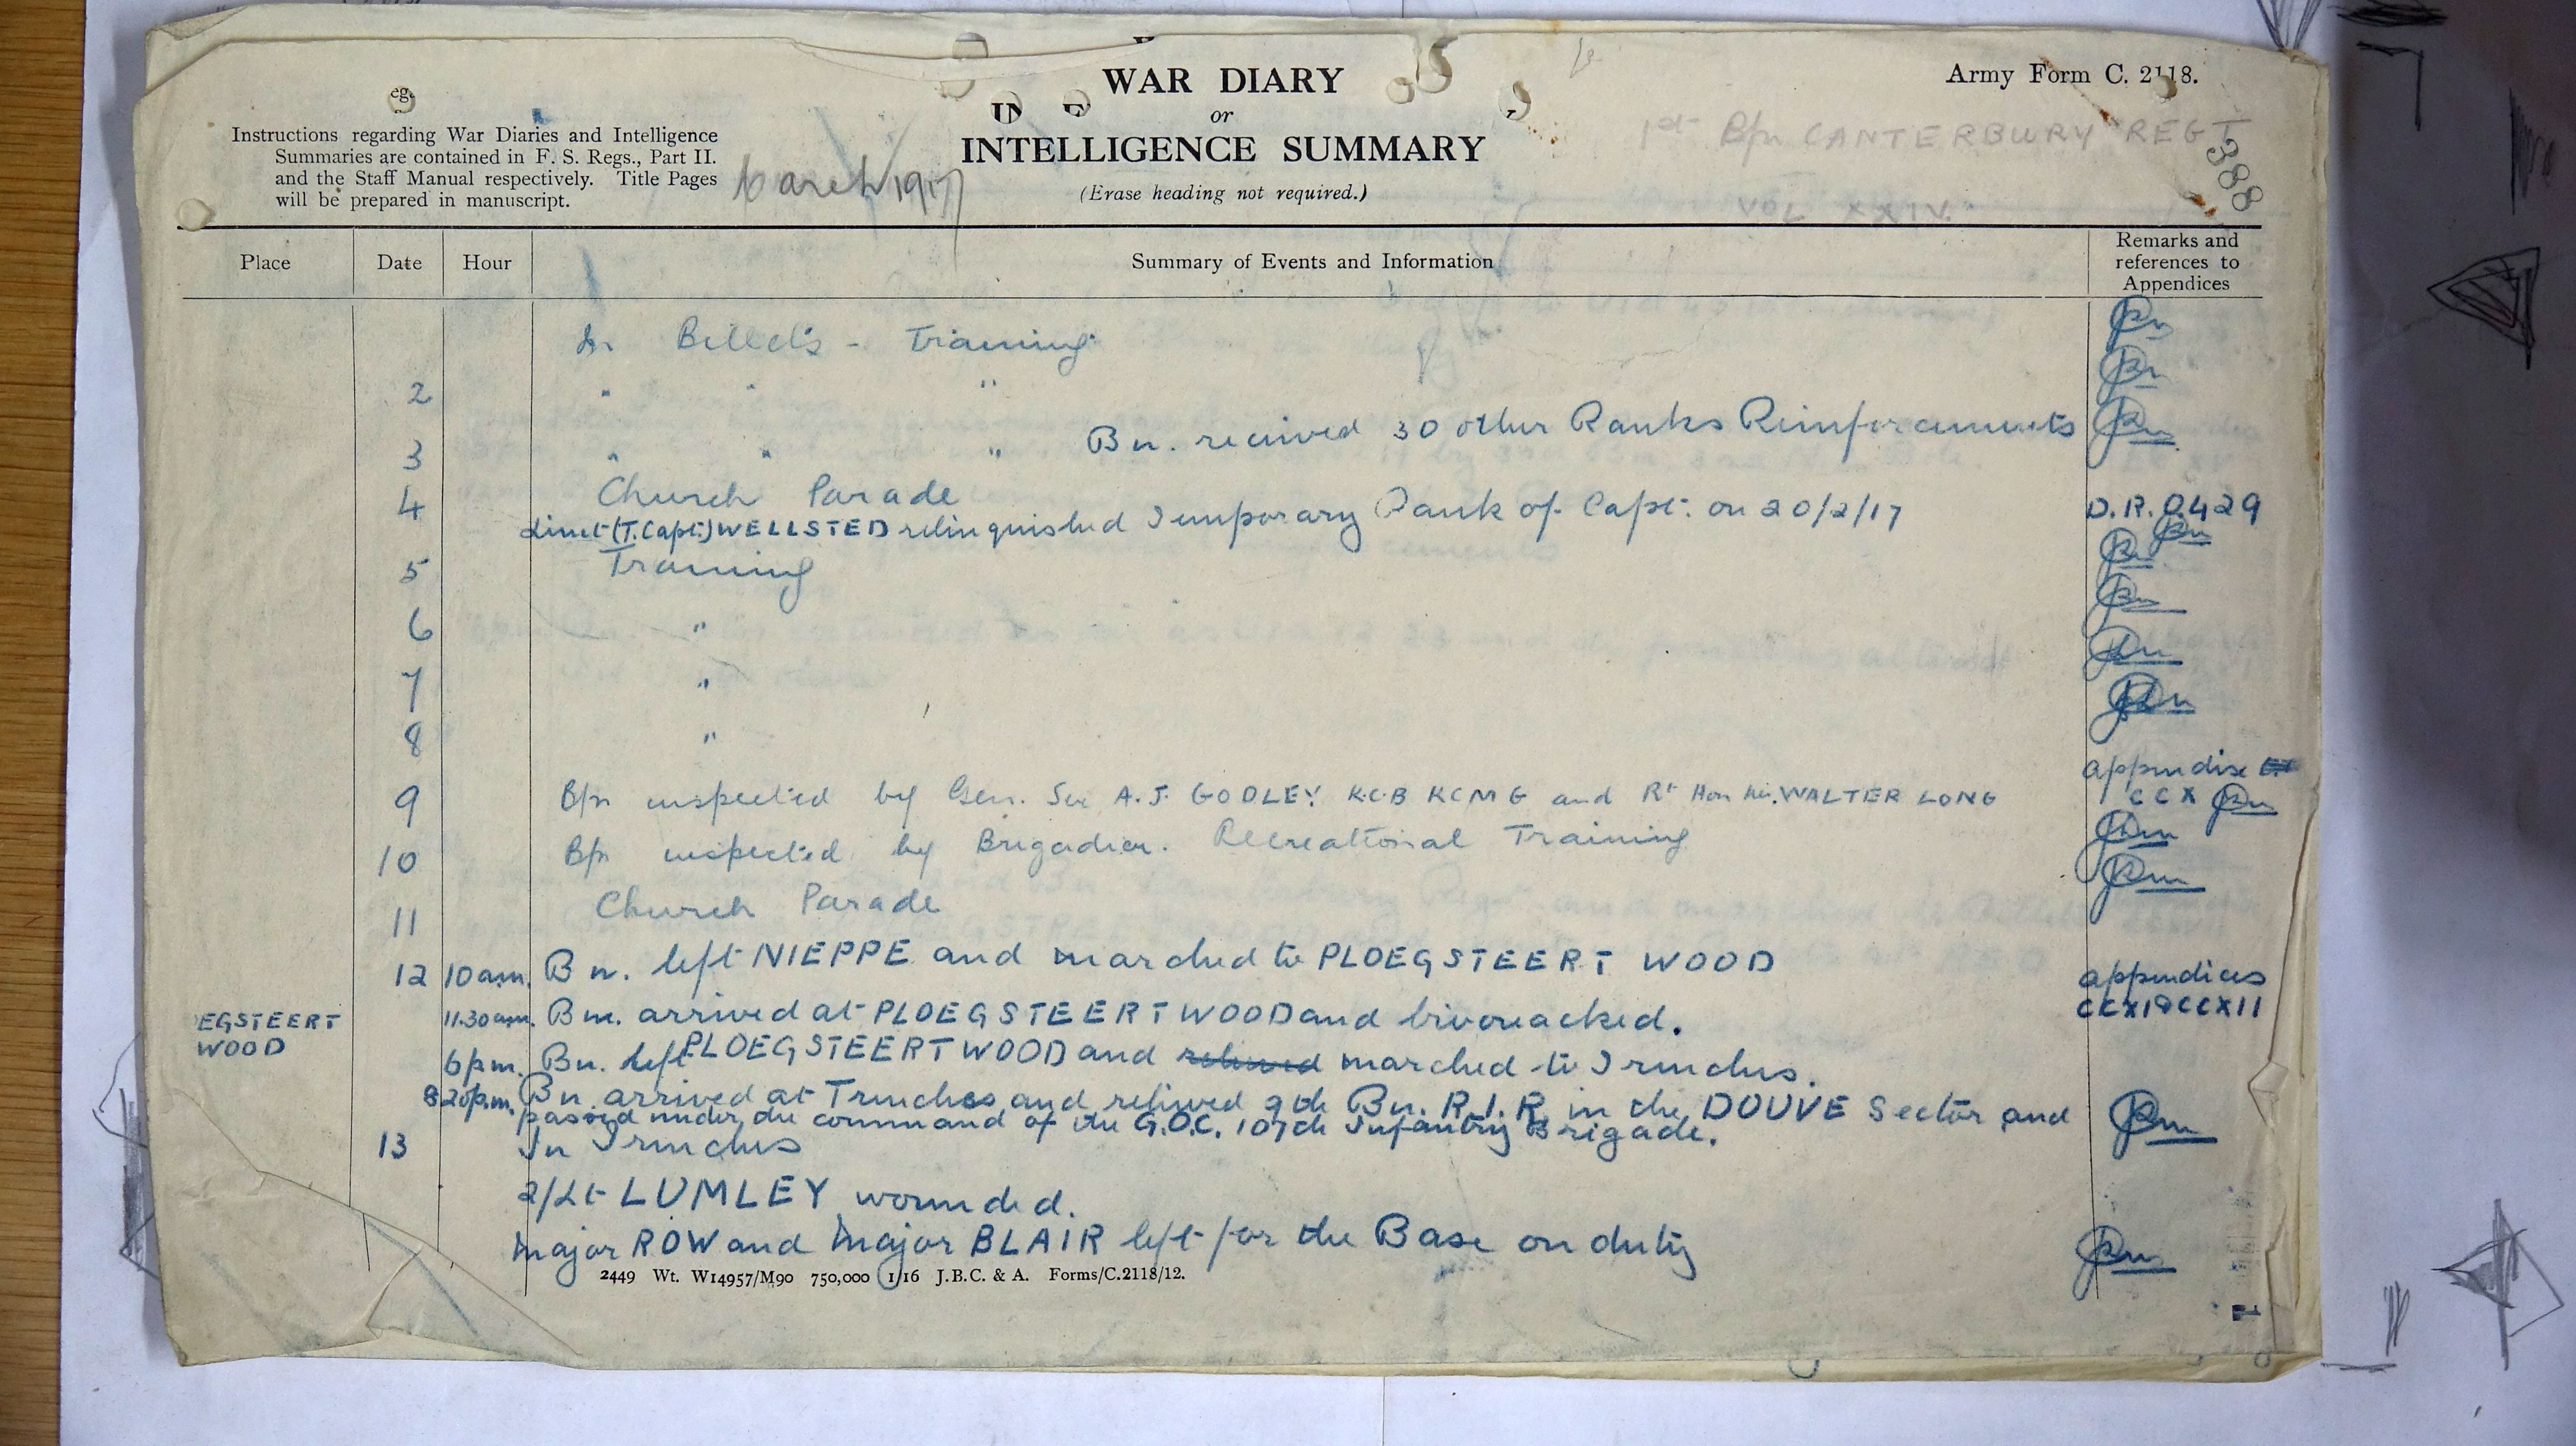 WAR DIARY
or
INTELLIGENCE SUMMARY
(Erase heading not required.)
Army Form C. 2118.
Instructions regarding War Diaries and Intelligence
Summaries are contained in F. S. Regs., Part II.
and the Staff Manual respectively. Title Pages
will be prepared in manuscript.
March 1917
1st B/n CANTERBURY REGT
VOL XXIV.
388
Place Date Hour Summary of Events and Information Remarks and references to Appendices
In Billets - Training
2 " " "
3 " " " Bn. received 30 other Ranks Reinforcements
4 Church Parade
Lieut (T.Capt.) WELLSTED relinquished Temporary Rank of Capt. on 20/2/17 D.R.O.429
5 Training
6 "
7 "
8 "
9 B/n inspected by Gen. Sir A.J. GODLEY K.C.B KCMG and Rt Hon Mr. WALTER LONG appendix CCX
10 B/n inspected by Brigadier. Recreational Training
11 Church Parade
12 10am. Bn. left NIEPPE and marched to PLOEGSTEERT WOOD appendices
EGSTEERT WOOD 11.30am. Bn. arrived at PLOEGSTEERT WOOD and bivouacked. CCXI & CCXII
6pm. Bn. left PLOEGSTEERT WOOD and relieved marched to Trenches.
8.20p.m. Bn. arrived at Trenches and relieved 9th Bn. R.I.R. in the DOUVE Sector and
passed under the command of the G.O.C. 107th Infantry Brigade.
13 In Trenches
2/Lt LUMLEY wounded.
Major ROW and Major BLAIR left for the Base on duty
2449 Wt. W14957/M90 750,000 1/16 J.B.C. & A. Forms/C.2118/12.